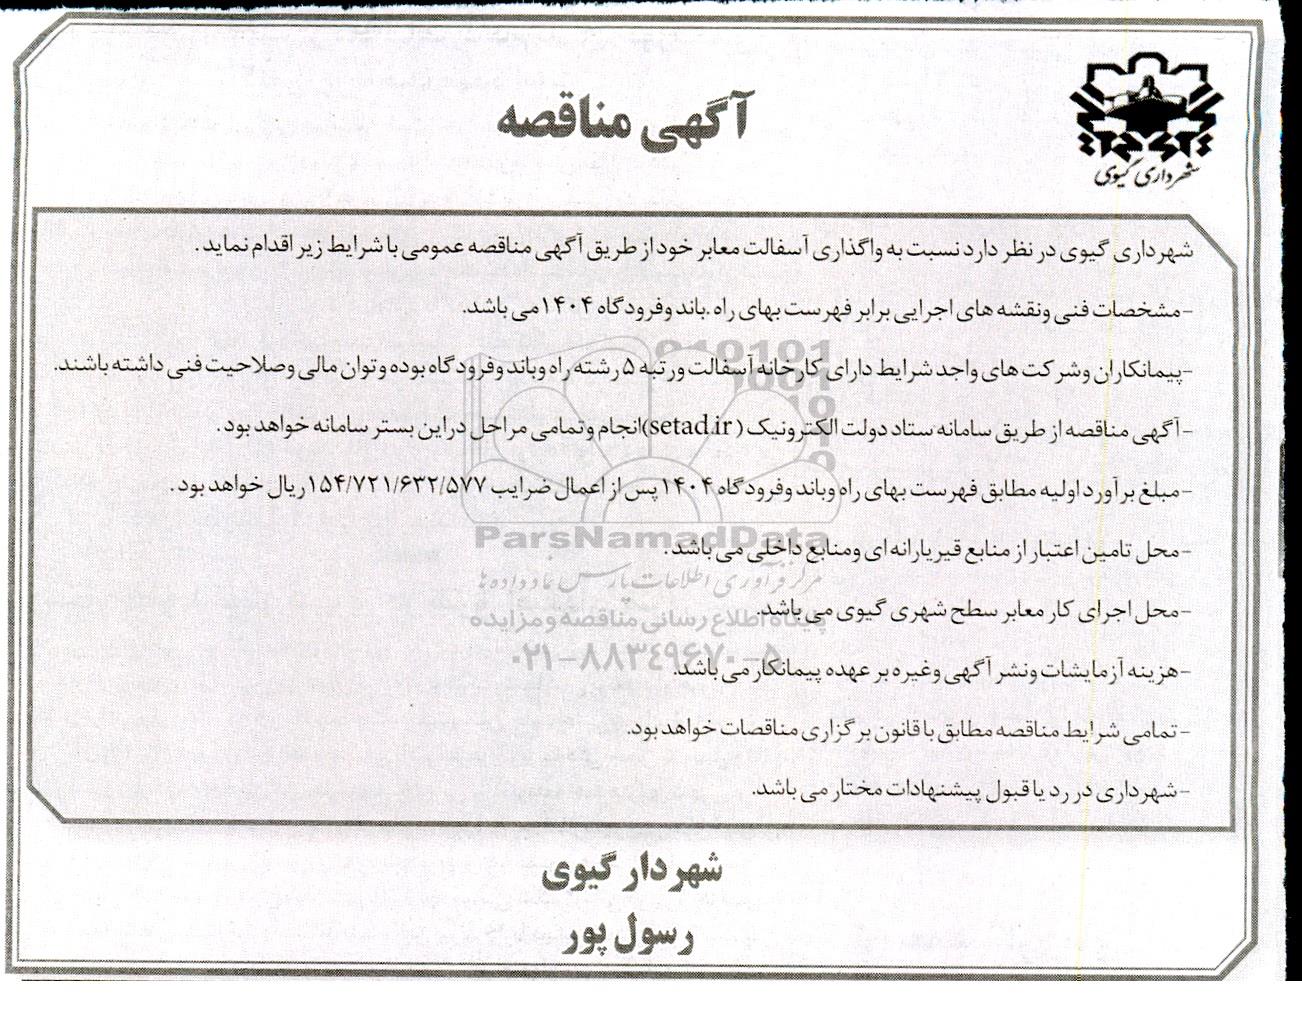 آگهی مناقصه
شهرداری گیوی
شهرداری گیوی در نظر دارد نسبت به واگذاری آسفالت معابر خود از طریق آگهی مناقصه عمومی با شرایط زیر اقدام نماید .
-مشخصات فنی ونقشه های اجرایی برابر فهرست بهای راه .باند وفرودگاه ۱۴۰۴ می باشد.
-پیمانکاران وشرکت های واجد شرایط دارای کارخانه آسفالت ورتبه ۵ رشته راه وباند وفرودگاه بوده وتوان مالی وصلاحیت فنی داشته باشند.
-آگهی مناقصه از طریق سامانه ستاد دولت الکترونیک ( setad.ir)انجام وتمامی مراحل دراین بستر سامانه خواهد بود .
-مبلغ برآورد اولیه مطابق فهرست بهای راه وباند وفرودگاه ۱۴۰۴ پس از اعمال ضرایب ۱۵۴/۷۲۱/۶۳۲/۵۷۷ ریال خواهد بود .
-محل تامین اعتبار از منابع قیریارانه ای ومنابع داخلی می باشد.
-محل اجرای کار معابر سطح شهری گیوی می باشد.
-هزینه آزمایشات ونشر آگهی وغیره بر عهده پیمانکار می باشد.
- تمامی شرایط مناقصه مطابق با قانون برگزاری مناقصات خواهد بود.
-شهرداری در رد یا قبول پیشنهادات مختار می باشد.
شهردار گیوی
رسول پور
ParsNamadData
مرکز فرآوری اطلاعات پارس نماد داده ها
پایگاه اطلاع رسانی مناقصه و مزایده
۰۲۱-۸۸۳۴۹۶۷۰-۵